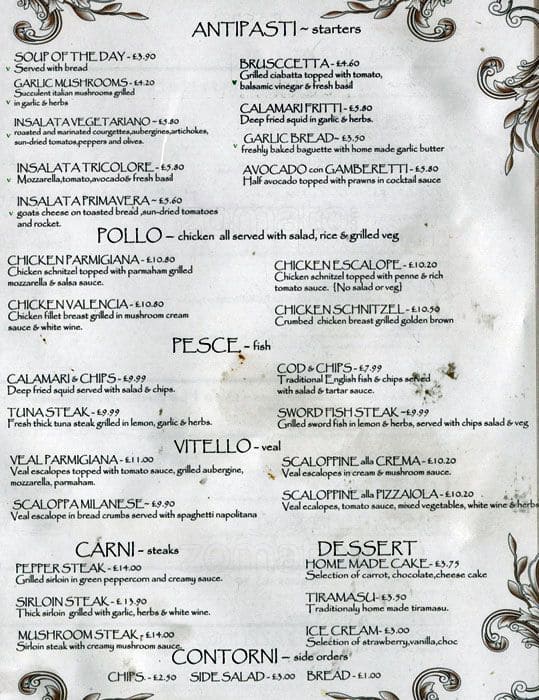 ANTIPASTI ~ starters
SOUP OF THE DAY - £3.90
v Served with bread
GARLIC MUSHROOMS - £4.20
Succulent italian mushrooms grilled
v in garlic & herbs
INSALATA VEGETARIANO ~ £5.80
v roasted and marinated courgettes,aubergines,artichokes,
sun-dried tomatoes,peppers and olives.
INSALATA TRICOLORE - £5.80
v Mozzarella,tomato,avocado& fresh basil
INSALATA PRIMAVERA ~ £5.60
v goats cheese on toasted bread ,sun-dried tomatoes
and rocket.
BRUSCCETTA - £4.60
Grilled ciabatta topped with tomato,
v balsamic vinegar & fresh basil
CALAMARI FRITTI - £5.80
Deep fried squid in garlic & herbs.
GARLIC BREAD - £3.50
v freshly baked baguette with home made garlic butter
AVOCADO con GAMBERETTI - £5.80
Half avocado topped with prawns in cocktail sauce
POLLO – chicken all served with salad, rice & grilled veg
CHICKEN PARMIGIANA - £10.80
Chicken schnitzel topped with parmaham grilled
mozzarella & salsa sauce.
CHICKEN VALENCIA - £10.80
Chicken fillet breast grilled in mushroom cream
sauce & white wine.
CHICKEN ESCALOPE - £10.20
Chicken schnitzel topped with penne & rich
tomato sauce. {No salad or veg}
CHICKEN SCHNITZEL - £10.50
Crumbed chicken breast grilled golden brown
PESCE – fish
CALAMARI & CHIPS - £9.99
Deep fried squid served with salad & chips.
TUNA STEAK - £9.99
Fresh thick tuna steak grilled in lemon, garlic & herbs.
COD & CHIPS - £7.99
Traditional English fish & chips served
with salad & tartar sauce.
SWORD FISH STEAK ~£9.99
Grilled sword fish in lemon & herbs, served with chips salad & veg
VITELLO – veal
VEAL PARMIGIANA - £11.00
Veal escalopes topped with tomato sauce, grilled aubergine,
mozzarella, parmaham.
SCALOPPA MILANESE - £9.90
Veal escalope in bread crumbs served with spaghetti napolitana
SCALOPPINE alla CREMA - £10.20
Veal escalopes in cream & mushroom sauce.
SCALOPPINE alla PIZZAIOLA - £10.20
Veal ecalopes, tomato sauce, mixed vegetables, white wine & herbs
CARNI ~ steaks
PEPPER STEAK - £14.00
Grilled sirloin in green peppercorn and creamy sauce.
SIRLOIN STEAK - £13.90
Thick sirloin grilled with garlic, herbs & white wine.
MUSHROOM STEAK - £14.00
Sirloin steak with creamy mushroom sauce.
DESSERT
HOME MADE CAKE - £3.75
Selection of carrot, chocolate,cheese cake
TIRAMASU - £3.50
Traditionaly home made tiramasu.
ICE CREAM - £3.00
Selection of strawberry,vanilla,choc
CONTORNI – side orders
CHIPS - £2.50 SIDE SALAD - £3.00 BREAD - £1.00